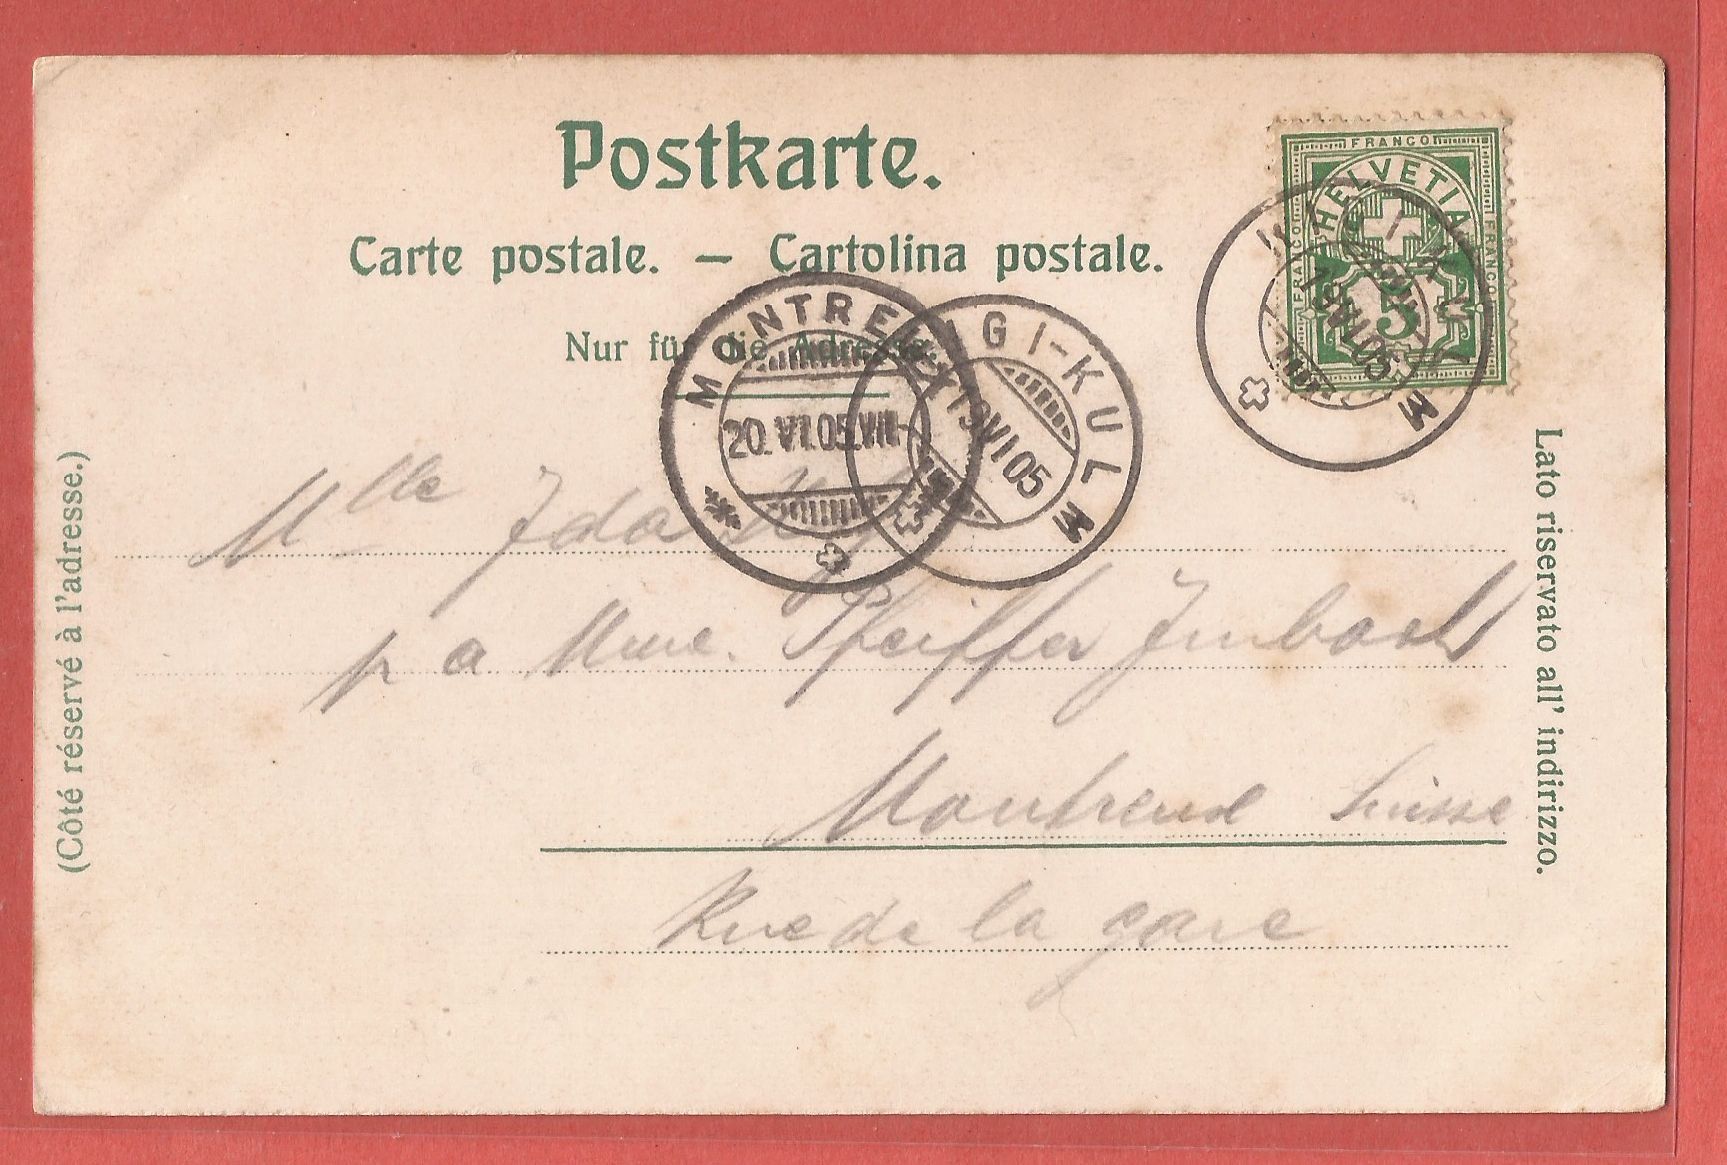 Postkarte.
Carte postale. — Cartolina postale.
Nur für die Adresse.
FRANCO
HELVETIA
FRANCO
FRANCO
5
RIGI-KULM
19 VI 05
MONTREUX
20. VI. 05. VIII
RIGI-KULM
19 VI 05
(Côté réservé à l'adresse.)
Lato riservato all' indirizzo.
Mlle Ida
p a Mme. Pfeiffer Imbach
Montreux Suisse
Rue de la gare